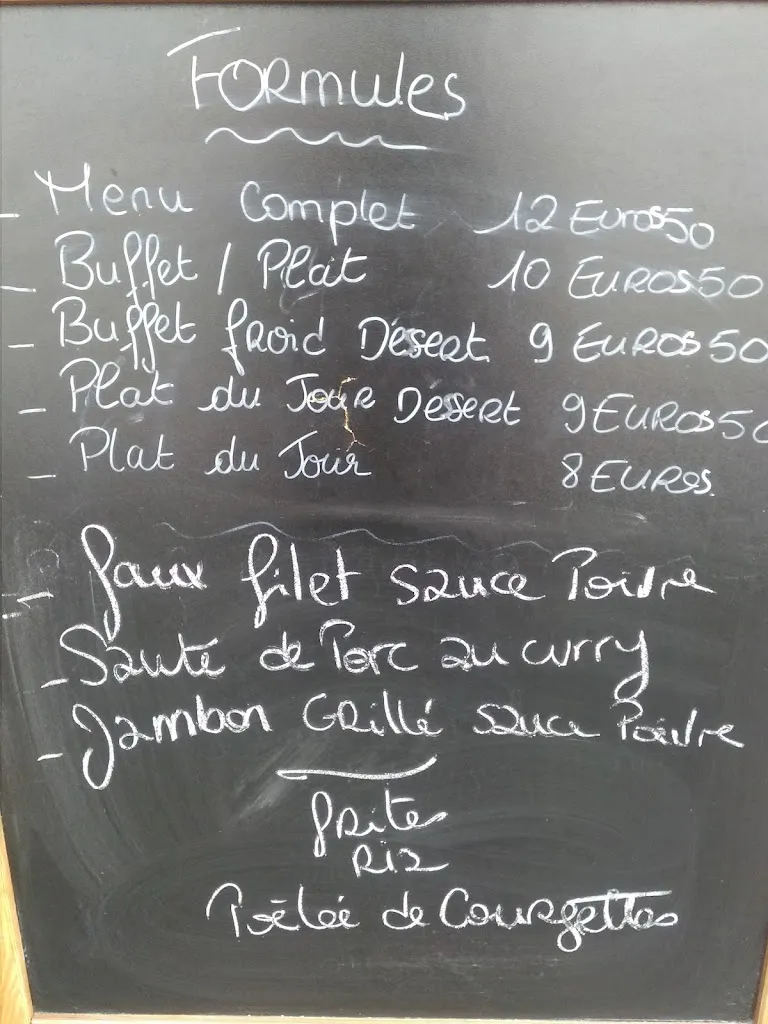 FORMULES
- Menu Complet 12 Euros50
- Buffet / Plat 10 EUROS50
- Buffet froid Désert 9 EUROS50
- Plat du Jour Dessert 9 EUROS50
- Plat du Jour 8 EUROS
- faux filet sauce Poivre
- Sauté de Porc au curry
- Jambon Grillé sauce Poivre
frites
RIZ
Poêlée de Courgettes